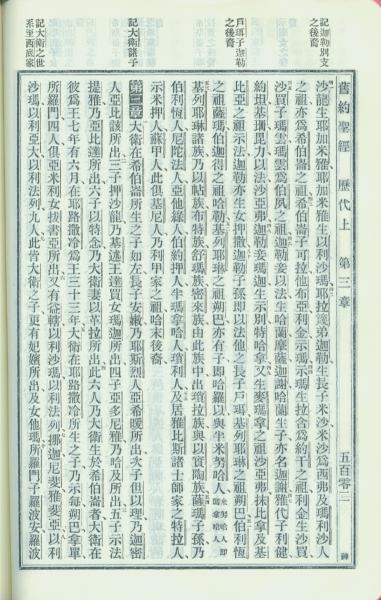 舊約聖經 歷代上 第三章 五百零二
記迦勒別支之後裔
沙龍生耶加米雅耶加米雅生以利沙瑪耶拉篾弟迦勒生長子米沙米沙為西弗及瑪利沙人
之祖亦為希伯崙之祖希伯崙子可拉他布亞利金示瑪示瑪生拉含為約干之祖利金生沙買
沙買子瑪雲瑪雲為伯夙之祖迦勒妾以法生哈蘭摩薩迦謝哈蘭生子亦名迦謝雅代子利健
約坦基珊毘力以法沙亞弗迦勒妾瑪迦生示別特哈拿又生麥瑪拿之祖沙亞弗抹比拿及基
戶珥子迦勒之後裔
比亞之祖示法迦勒亦生女押撒迦勒子孫即以法他之長子戶珥基列耶琳之祖朔巴伯利恆
之祖薩瑪伯迦得之祖哈勒基列耶琳之祖朔巴亦有子即哈羅以與半米努哈人
基列耶琳諸族乃以帖族布特族舒瑪族密來族由此族中出瑣拉族與以實陶族薩瑪子孫乃
伯利恆人尼陀法人亞他綠人伯約押人半瑪拿哈人瑣利人及居雅比斯諸士師家之特拉人
示米押人蘇甲人此俱基尼人乃利甲家之祖哈末後裔
記大衛諸子
第三章 大衛在希伯崙所生之子如左長子安嫩乃耶斯烈人亞希暖所出次子但以理乃迦密
人亞比該所出三子押沙龍乃基述王達買女瑪迦所出四子亞多尼雅乃哈及所出五子示法
提雅乃亞比達所出六子以特念乃大衛妻以革拉所出此六人乃大衛生於希伯崙者大衛在
彼為王七年有六月在耶路撒冷為王三十三年大衛在耶路撒冷所生之子乃示每朔巴拿單
所羅門四人俱亞米利女拔書亞所出又有益轄以利沙瑪以利法列挪迦尼斐雅斐亞以利
記大衛之世系至西底家
沙瑪以利亞大以利法列九人此皆大衛之子更有妃嬪所出及女他瑪所羅門子羅波安羅波